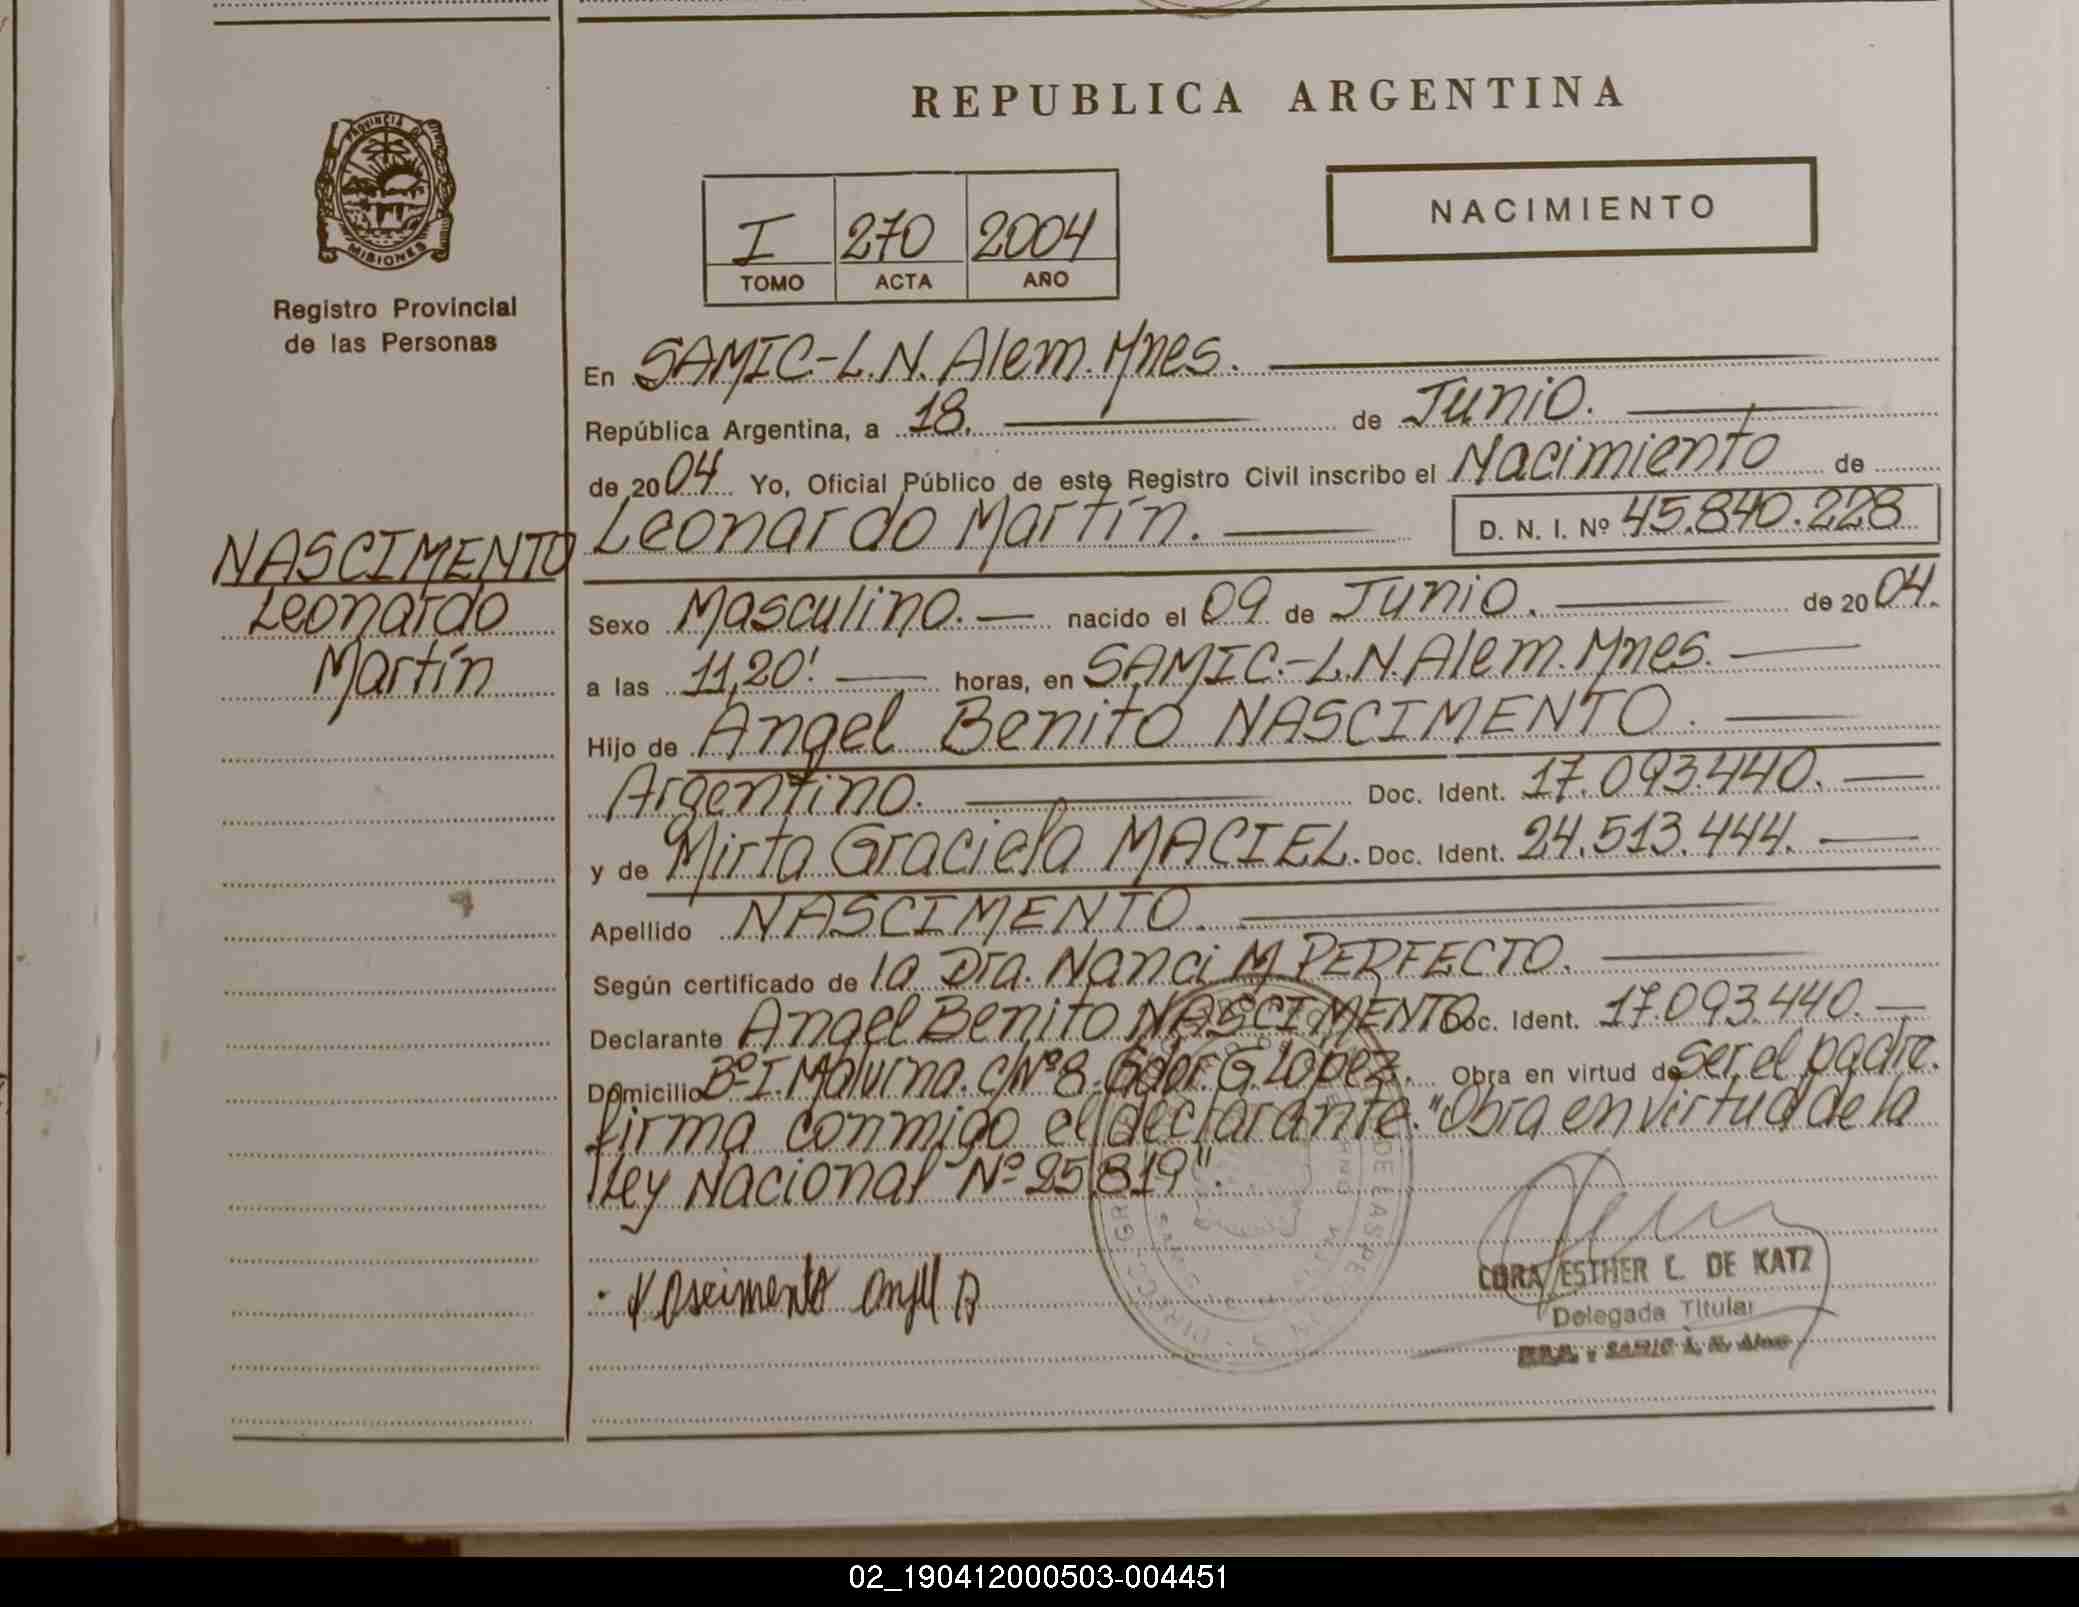 REPUBLICA ARGENTINA
PROVINCIA DE
MISIONES
Registro Provincial
de las Personas
I 270 2004
TOMO ACTA AÑO
NACIMIENTO
En SAMIC-L.N. Alem. Mnes.
República Argentina, a 18. de Junio.
de 2004 Yo, Oficial Público de este Registro Civil inscribo el Nacimiento de
Leonardo Martín. D. N. I. Nº 45.840.228
NASCIMENTO
Leonardo
Martín
Sexo Masculino. nacido el 09 de Junio. de 2004.
a las 11,20' horas, en SAMIC.-L.N. Alem. Mnes.
Hijo de Angel Benito NASCIMENTO.
Argentino. Doc. Ident. 17.093.440.
y de Mirta Graciela MACIEL. Doc. Ident. 24.513.444.
Apellido NASCIMENTO.
Según certificado de la Dra. Nanci M PERFECTO.
Declarante Angel Benito NASCIMENTO Doc. Ident. 17.093.440.
Domicilio Bº I. Malvina. C/Nº 8. Gdor. G. López. Obra en virtud de ser el padre.
firma conmigo el declarante. "Obra en virtud de la
Ley Nacional Nº 25.819".
Nascimento Angel B
CORA ESTHER C. DE KATZ
Delegada Titular
02_190412000503-004451